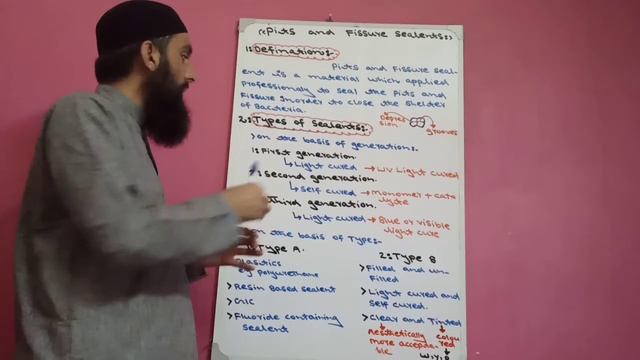 "Pits and Fissure Sealents"
1: Defination:-
Pits and Fissure Seal-
ent is a material which applied
Professionaly to seal the Pits and
Fissure Inorder to close the Shelter
of Bacteria.
Depres
sion
grooves
2:- Types of Sealents:-
> on the basis of generations.
1: First generation
Light cured → UV Light cured
Second generation.
Self cured → Monomer + cata
lyte
Third generation.
Light cured → Blue or visible
light cure
on the basis of Types:-
Type A.
Plastics
eg Polyurethane
> Resin Based sealent
> GIC
> Fluoride containing
Sealent
2: Type B
> Filled and un-
Filled
> Light cured and
Self cured.
> Clear and Tinted
Aesthetically
more accepta-
ble.